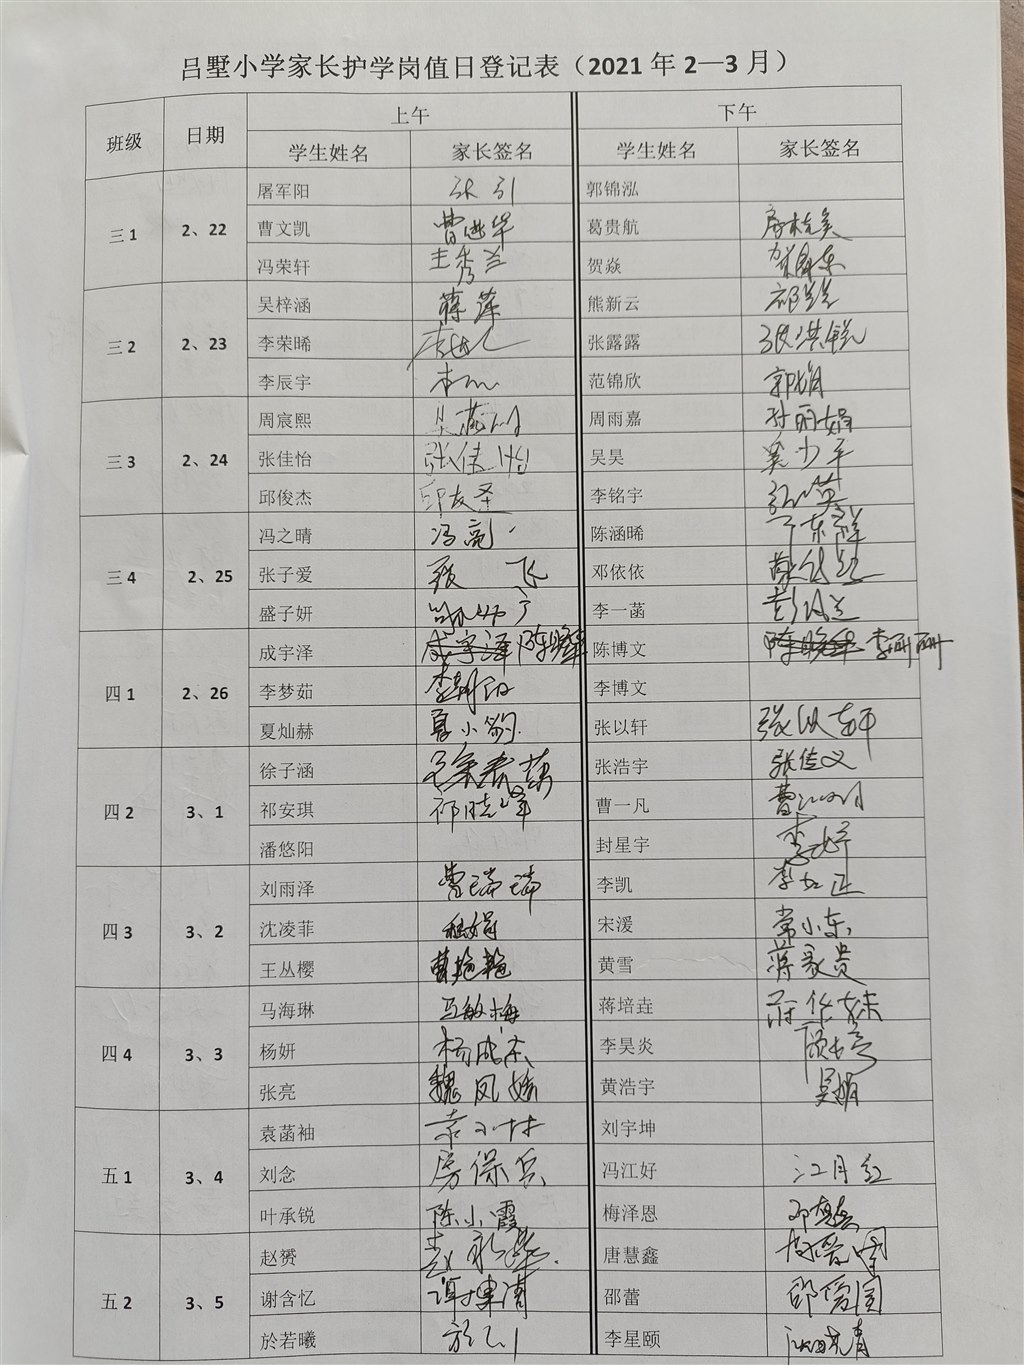 吕墅小学家长护学岗值日登记表（2021 年 2—3 月）
班级 日期 上午 下午
学生姓名 家长签名 学生姓名 家长签名
屠军阳 张引 郭锦泓
三 1 2、22 曹文凯 曹进华 葛贵航
冯荣轩 王秀兰 贺焱
吴梓涵 蒋萍 熊新云
三 2 2、23 李荣晞 张露露 张洪锐
李辰宇 范锦欣 郭娟
周宸熙 周雨嘉 孙丽娟
三 3 2、24 张佳怡 张佳怡 吴昊 吴少平
邱俊杰 邱友圣 李铭宇
冯之晴 冯亮 陈涵晞 丁东群
三 4 2、25 张子爱 飞 邓依依
盛子妍 李一菡
成宇泽 成宇泽 陈晓华 陈博文 陈晓华 李丽丽
四 1 2、26 李梦茹 李博文
夏灿赫 夏小 张以轩 张以轩
徐子涵 张浩宇 张佳义
四 2 3、1 祁安琪 祁晓峰 曹一凡
潘悠阳 封星宇 李婷
刘雨泽 曹瑞瑞 李凯 李红正
四 3 3、2 沈凌菲 宋湲 常小东
王丛樱 曹艳艳 黄雪 蒋家贵
马海琳 马敏梅 蒋培垚
四 4 3、3 杨妍 杨成杰 李昊炎
张亮 魏凤娇 黄浩宇 吴娟
袁菡袖 袁小林 刘宇坤
五 1 3、4 刘念 房保兵 冯江好 江月红
叶承锐 陈小霞 梅泽恩
赵赟 赵永华 唐慧鑫
五 2 3、5 谢含忆 邵蕾 邵爱国
於若曦 李星颐